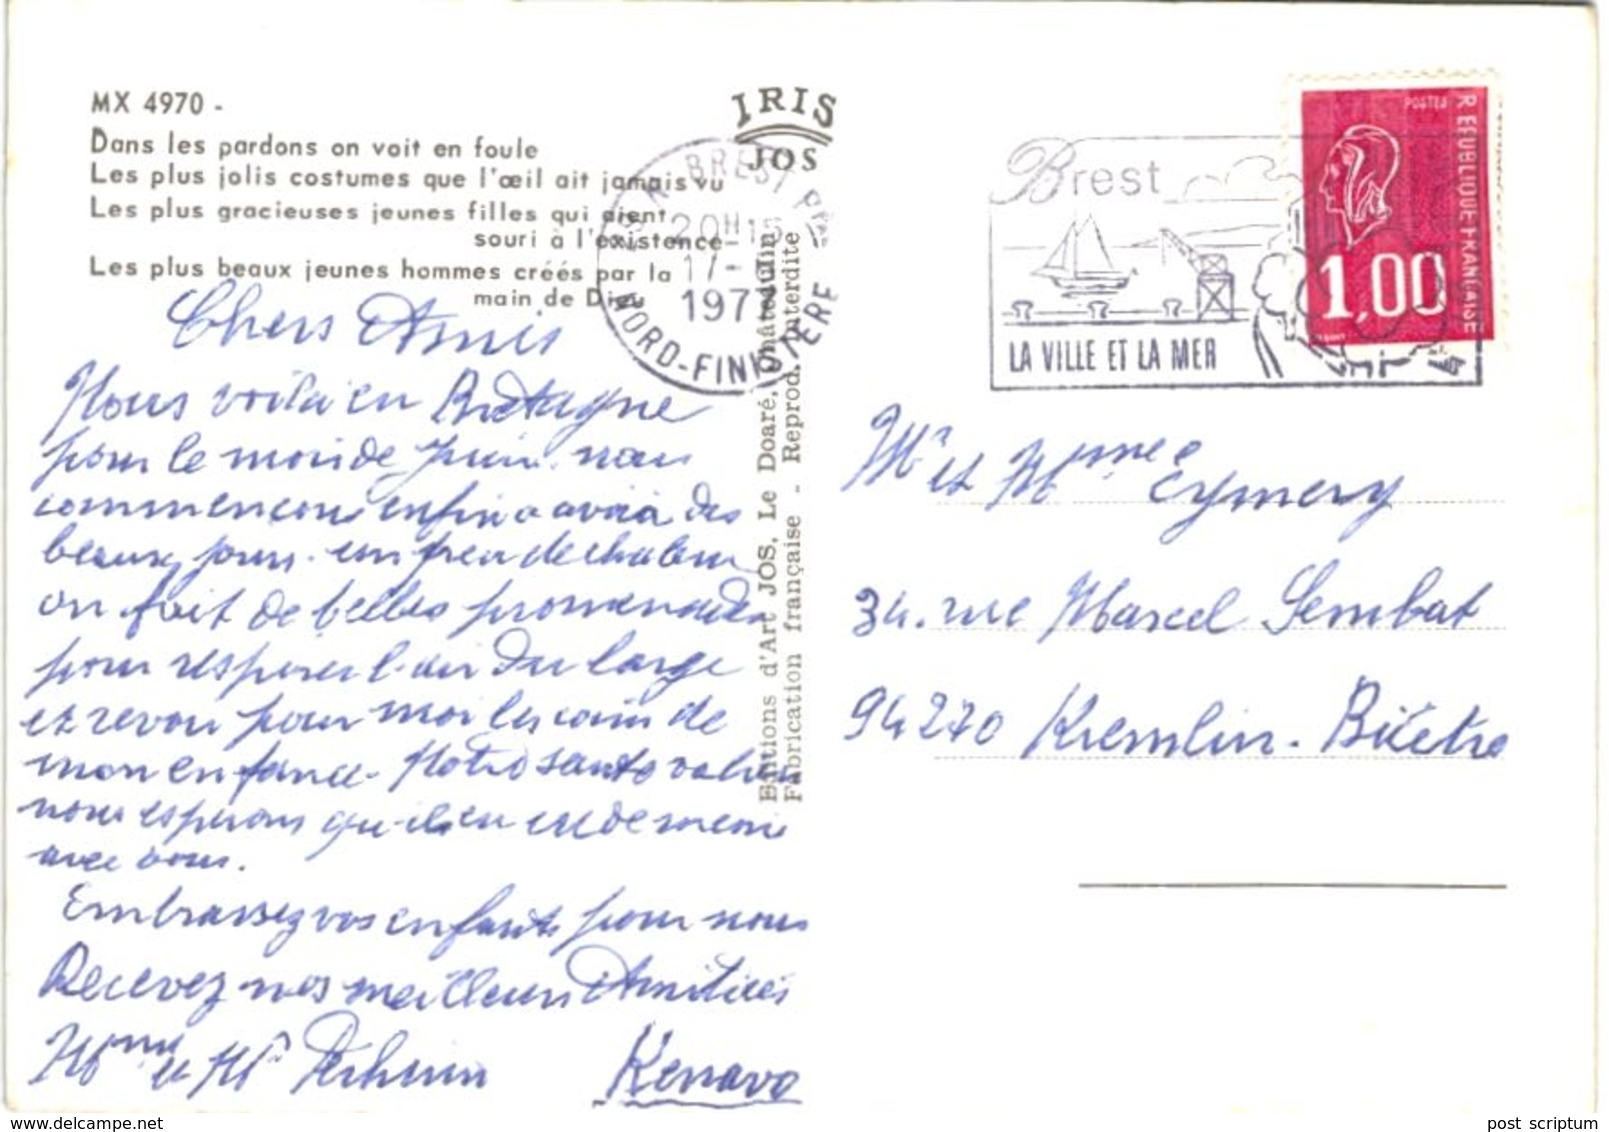 MX 4970 -
Dans les pardons on voit en foule
Les plus jolis costumes que l'œil ait jamais vu
Les plus gracieuses jeunes filles qui aient
souri à l'existence
Les plus beaux jeunes hommes créés par la
main de Dieu
Chers Amis
Nous voilà en Bretagne
pour le mois de juin. nous
commencons enfin a avoir des
beaux jours. un peu de chaleur
on fait de belles promenades
pour respirer l'air du large
et revoir pour moi les coins de
mon enfance. Notre santé
nous esperons qu-il en est de meme
avec vous.
Embrassez vos enfants pour nous
Recevez nos meilleurs Amitiés
Mme et Mr
Kenavo
IRIS
JOS
BREST
20H15
17-
197
NORD-FINISTERE
Editions d'Art JOS, Le Doaré, Châteaulin
Fabrication française - Reprod. Interdite
Brest
LA VILLE ET LA MER
POSTES
REPUBLIQUE FRANCAISE
1,00
Mr et Mme Eymery
34. rue Marcel Sembat
94270 Kremlin-Bicêtre
post scriptum